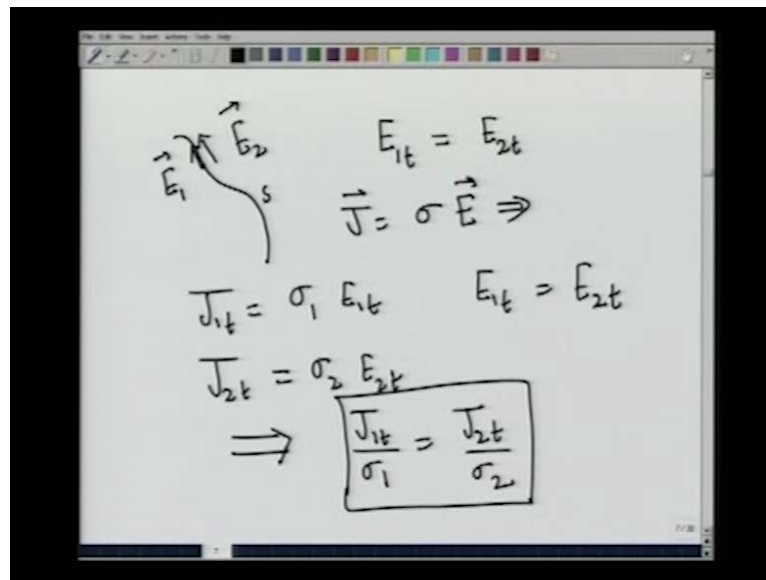 File Edit View Insert Actions Tools Help
E⃗₂ E₁t = E₂t
E⃗₁ S J⃗ = σ E⃗ ⇒
J₁t = σ₁ E₁t E₁t = E₂t
J₂t = σ₂ E₂t
⇒ J₁t/σ₁ = J₂t/σ₂